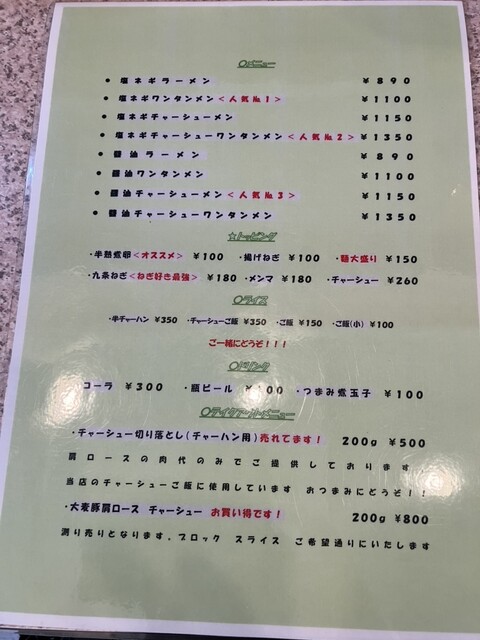 ○メニュー
● 塩ネギラーメン ¥890
● 塩ネギワンタンメン<人気№1> ¥1100
● 塩ネギチャーシューメン ¥1150
● 塩ネギチャーシューワンタンメン<人気№2> ¥1350
● 醤油ラーメン ¥890
● 醤油ワンタンメン ¥1100
● 醤油チャーシューメン<人気№3> ¥1150
● 醤油チャーシューワンタンメン ¥1350
☆トッピング
・半熟煮卵<オススメ> ¥100 ・揚げねぎ ¥100 ・麺大盛り ¥150
・九条ねぎ<ねぎ好き最強> ¥180 ・メンマ ¥180 ・チャーシュー ¥260
○ライス
・半チャーハン ¥350 ・チャーシューご飯 ¥350 ・ご飯 ¥150 ・ご飯(小) ¥100
ご一緒にどうぞ!!!
○ドリンク
コーラ ¥300 ・瓶ビール ・つまみ煮玉子 ¥100
○テイクアウトメニュー
・チャーシュー切り落とし(チャーハン用)売れてます! 200g ¥500
肩ロースの肉代のみでご提供しております
当店のチャーシューご飯に使用しています おつまみにどうぞ!!
・大麦豚肩ロース チャーシュー お買い得です! 200g ¥800
測り売りとなります。ブロック スライス ご希望通りにいたします